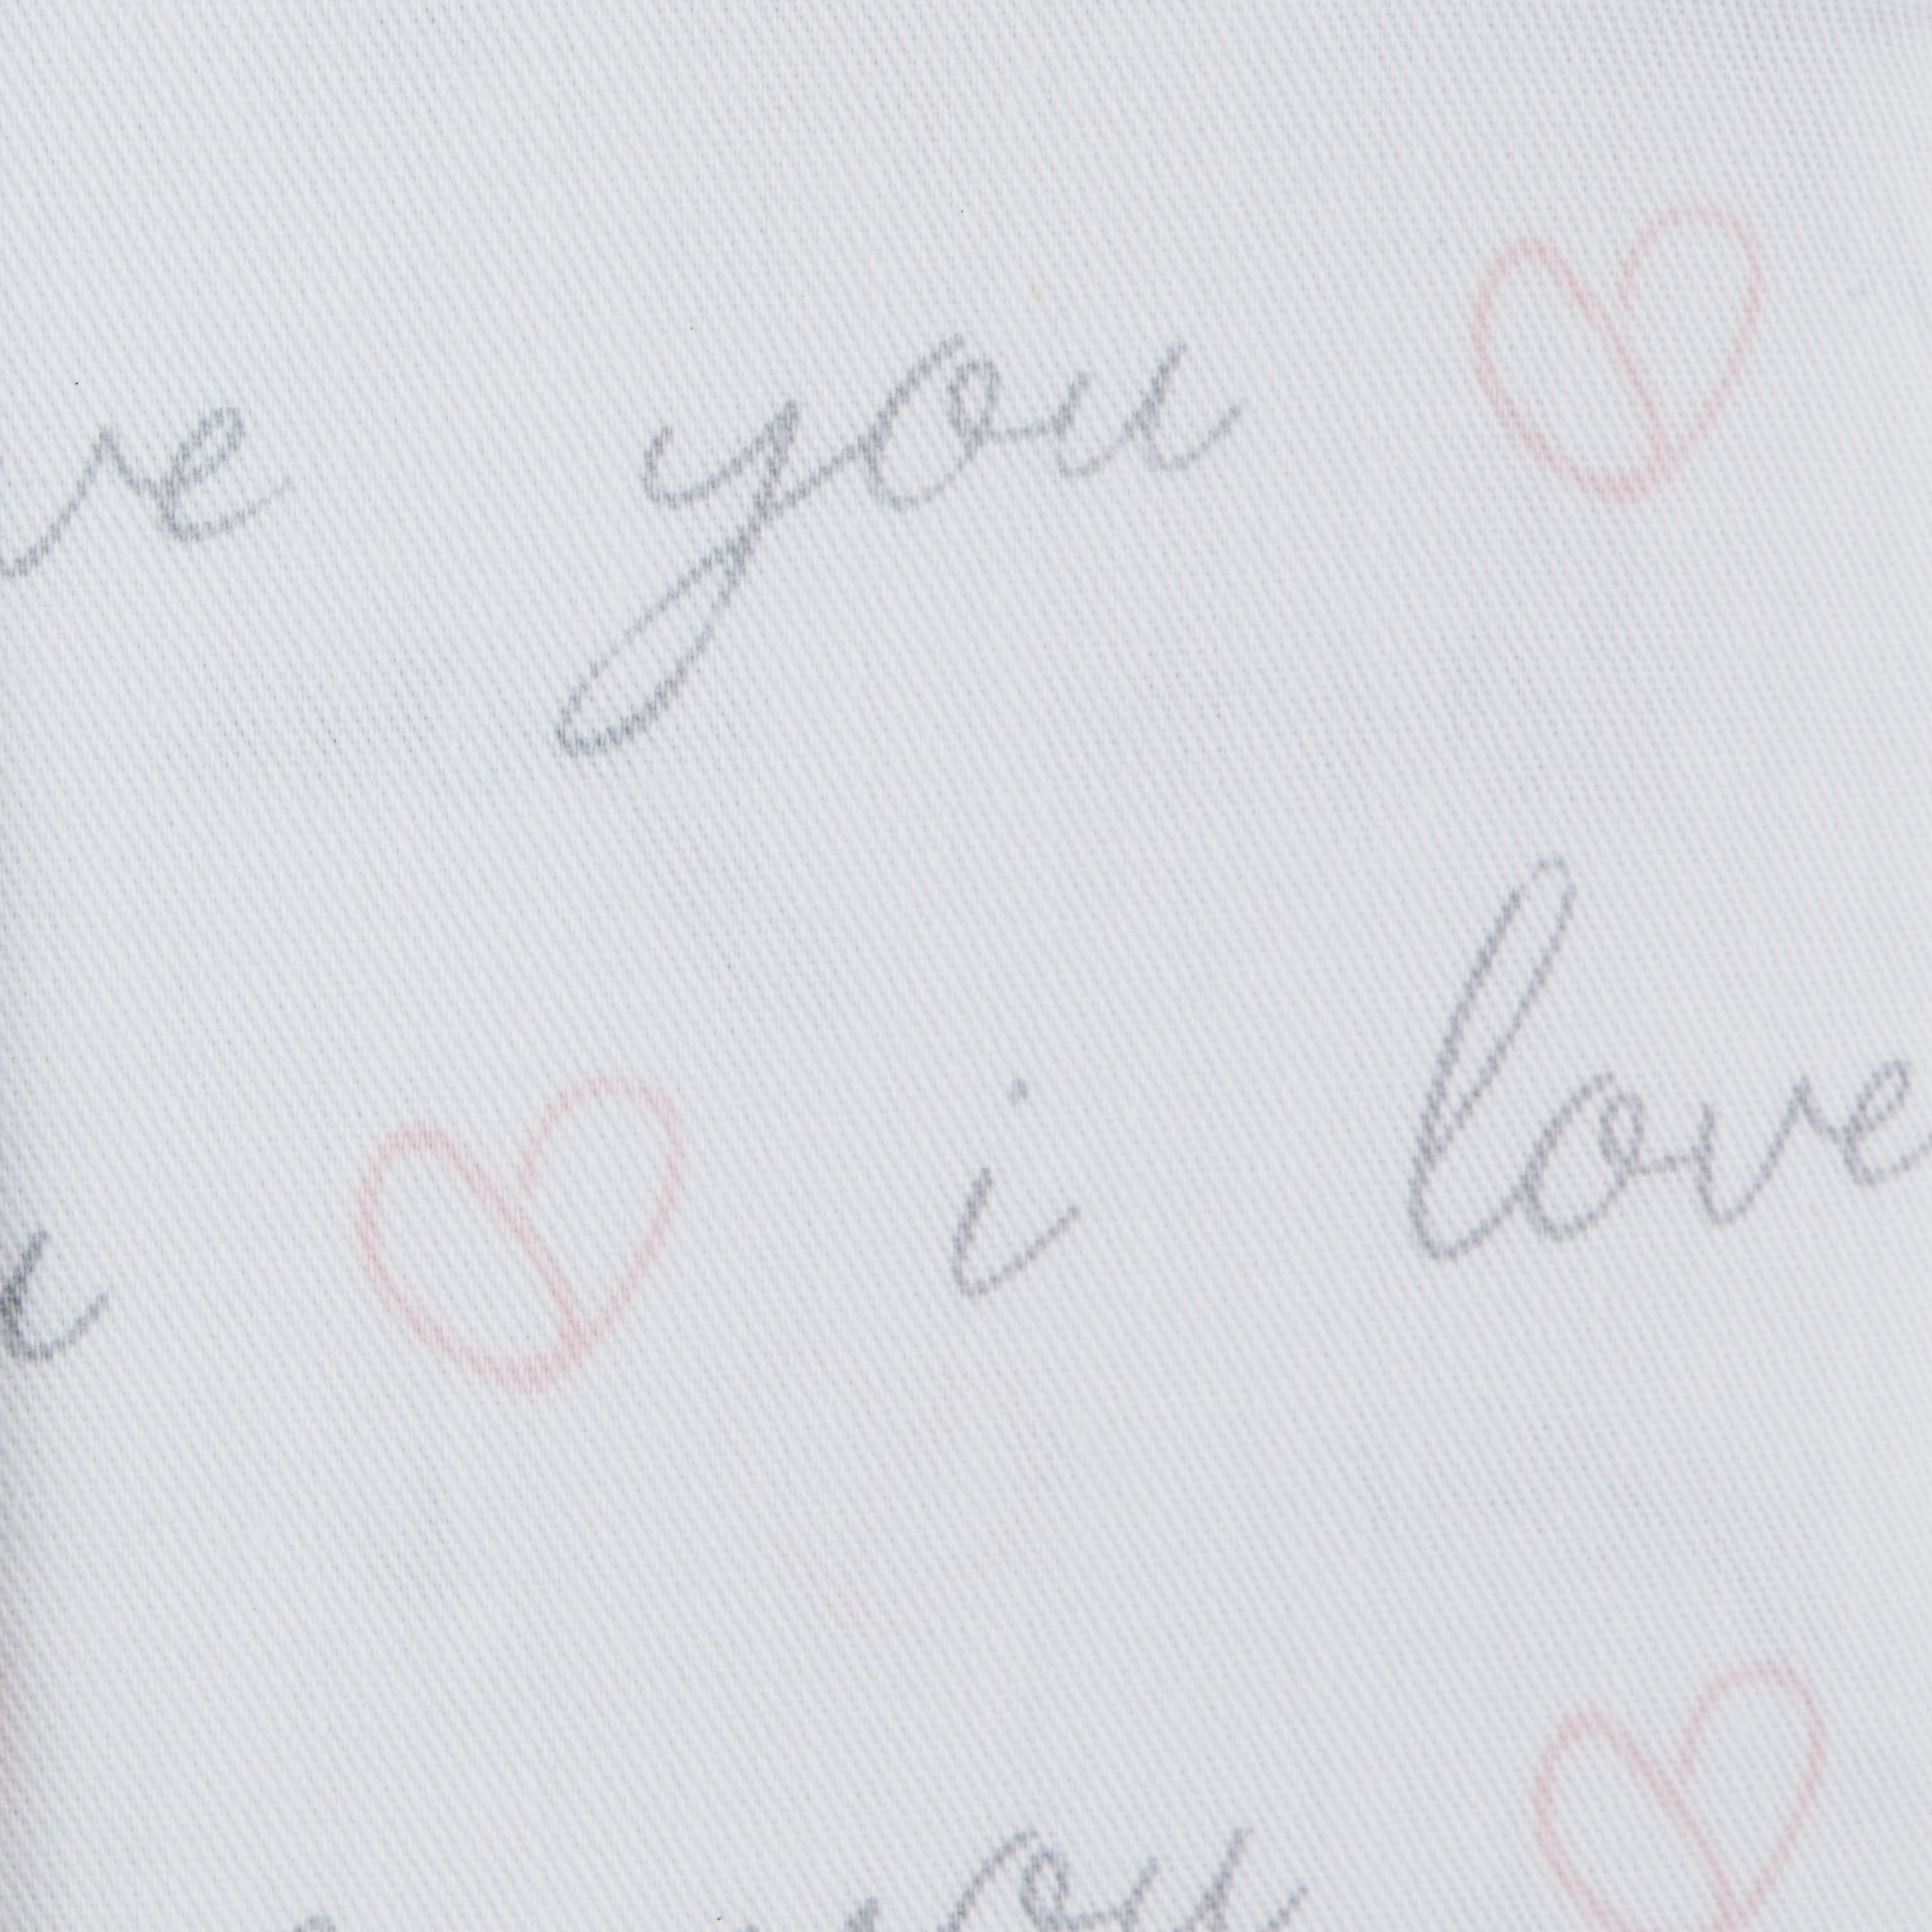 ve you
u i love
you